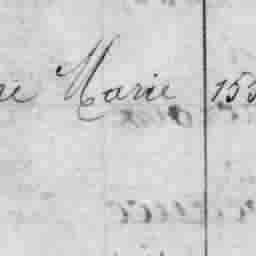 re Marie 153